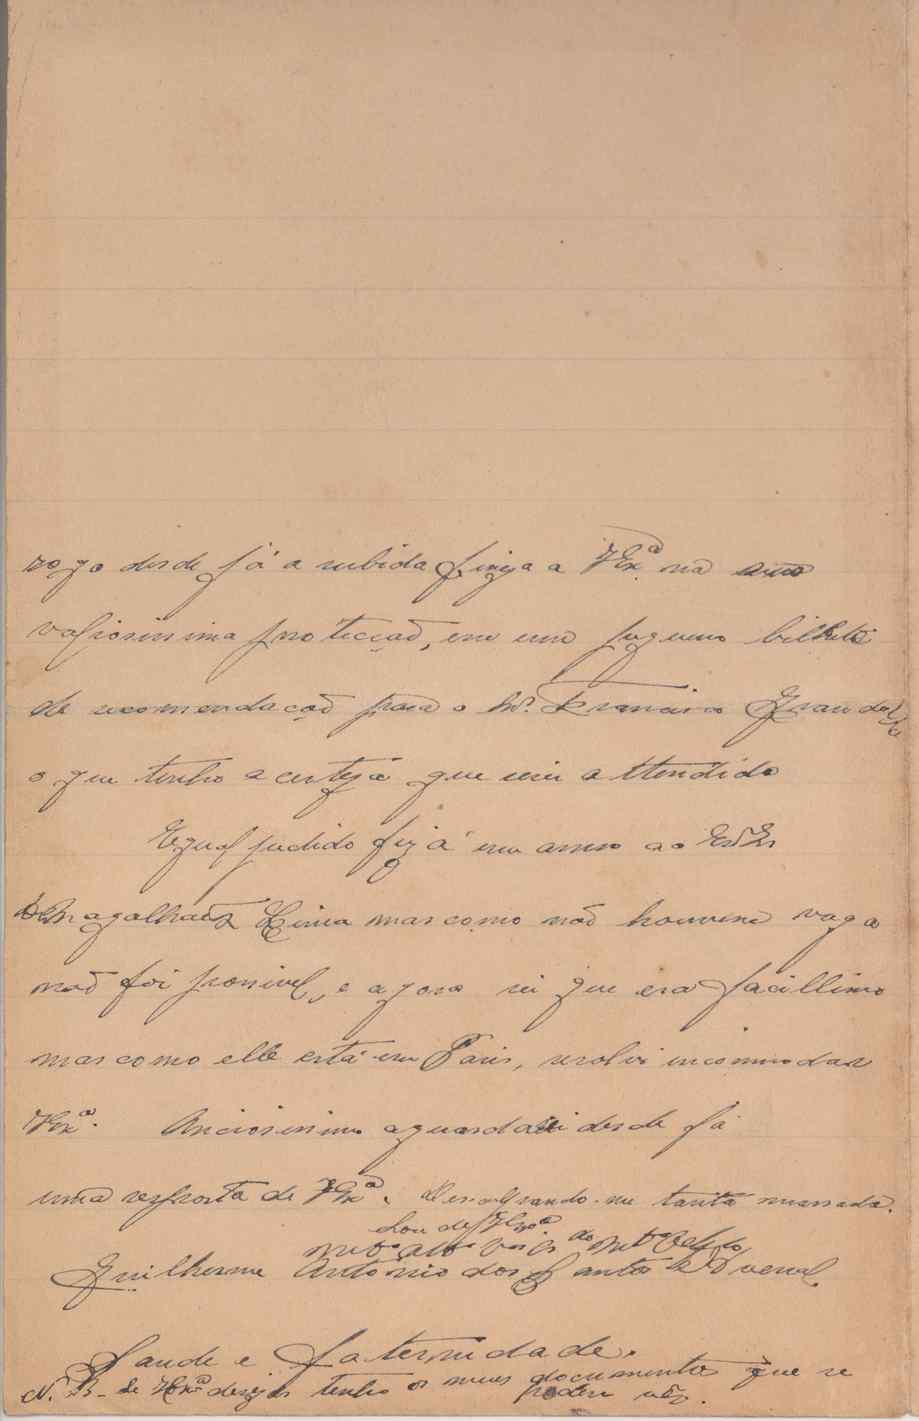 rogo desde já a subida fineza a VExª na sua
valiosissima protecção, em um pequeno bilhete
de recomendação para o Snr. Francisco Grandella
o que tenho a certeza que serei attendido
Egual pedido fiz á um anno ao
Magalhães Lima mas como não houvesse vaga
não foi possivel, e agora sei que era facillimo
mas como elle está em Paris, resolvi incommodar
VExª. Anciosissimo aguardarei desde já
uma resposta de VExª. Desculpando-me tanta massada.
Sou de
Guilherme Antonio dos Santos
Saude e Fraternidade.
N. B. Se VExª desejar tenho os meus documentos que se
podem vêr.